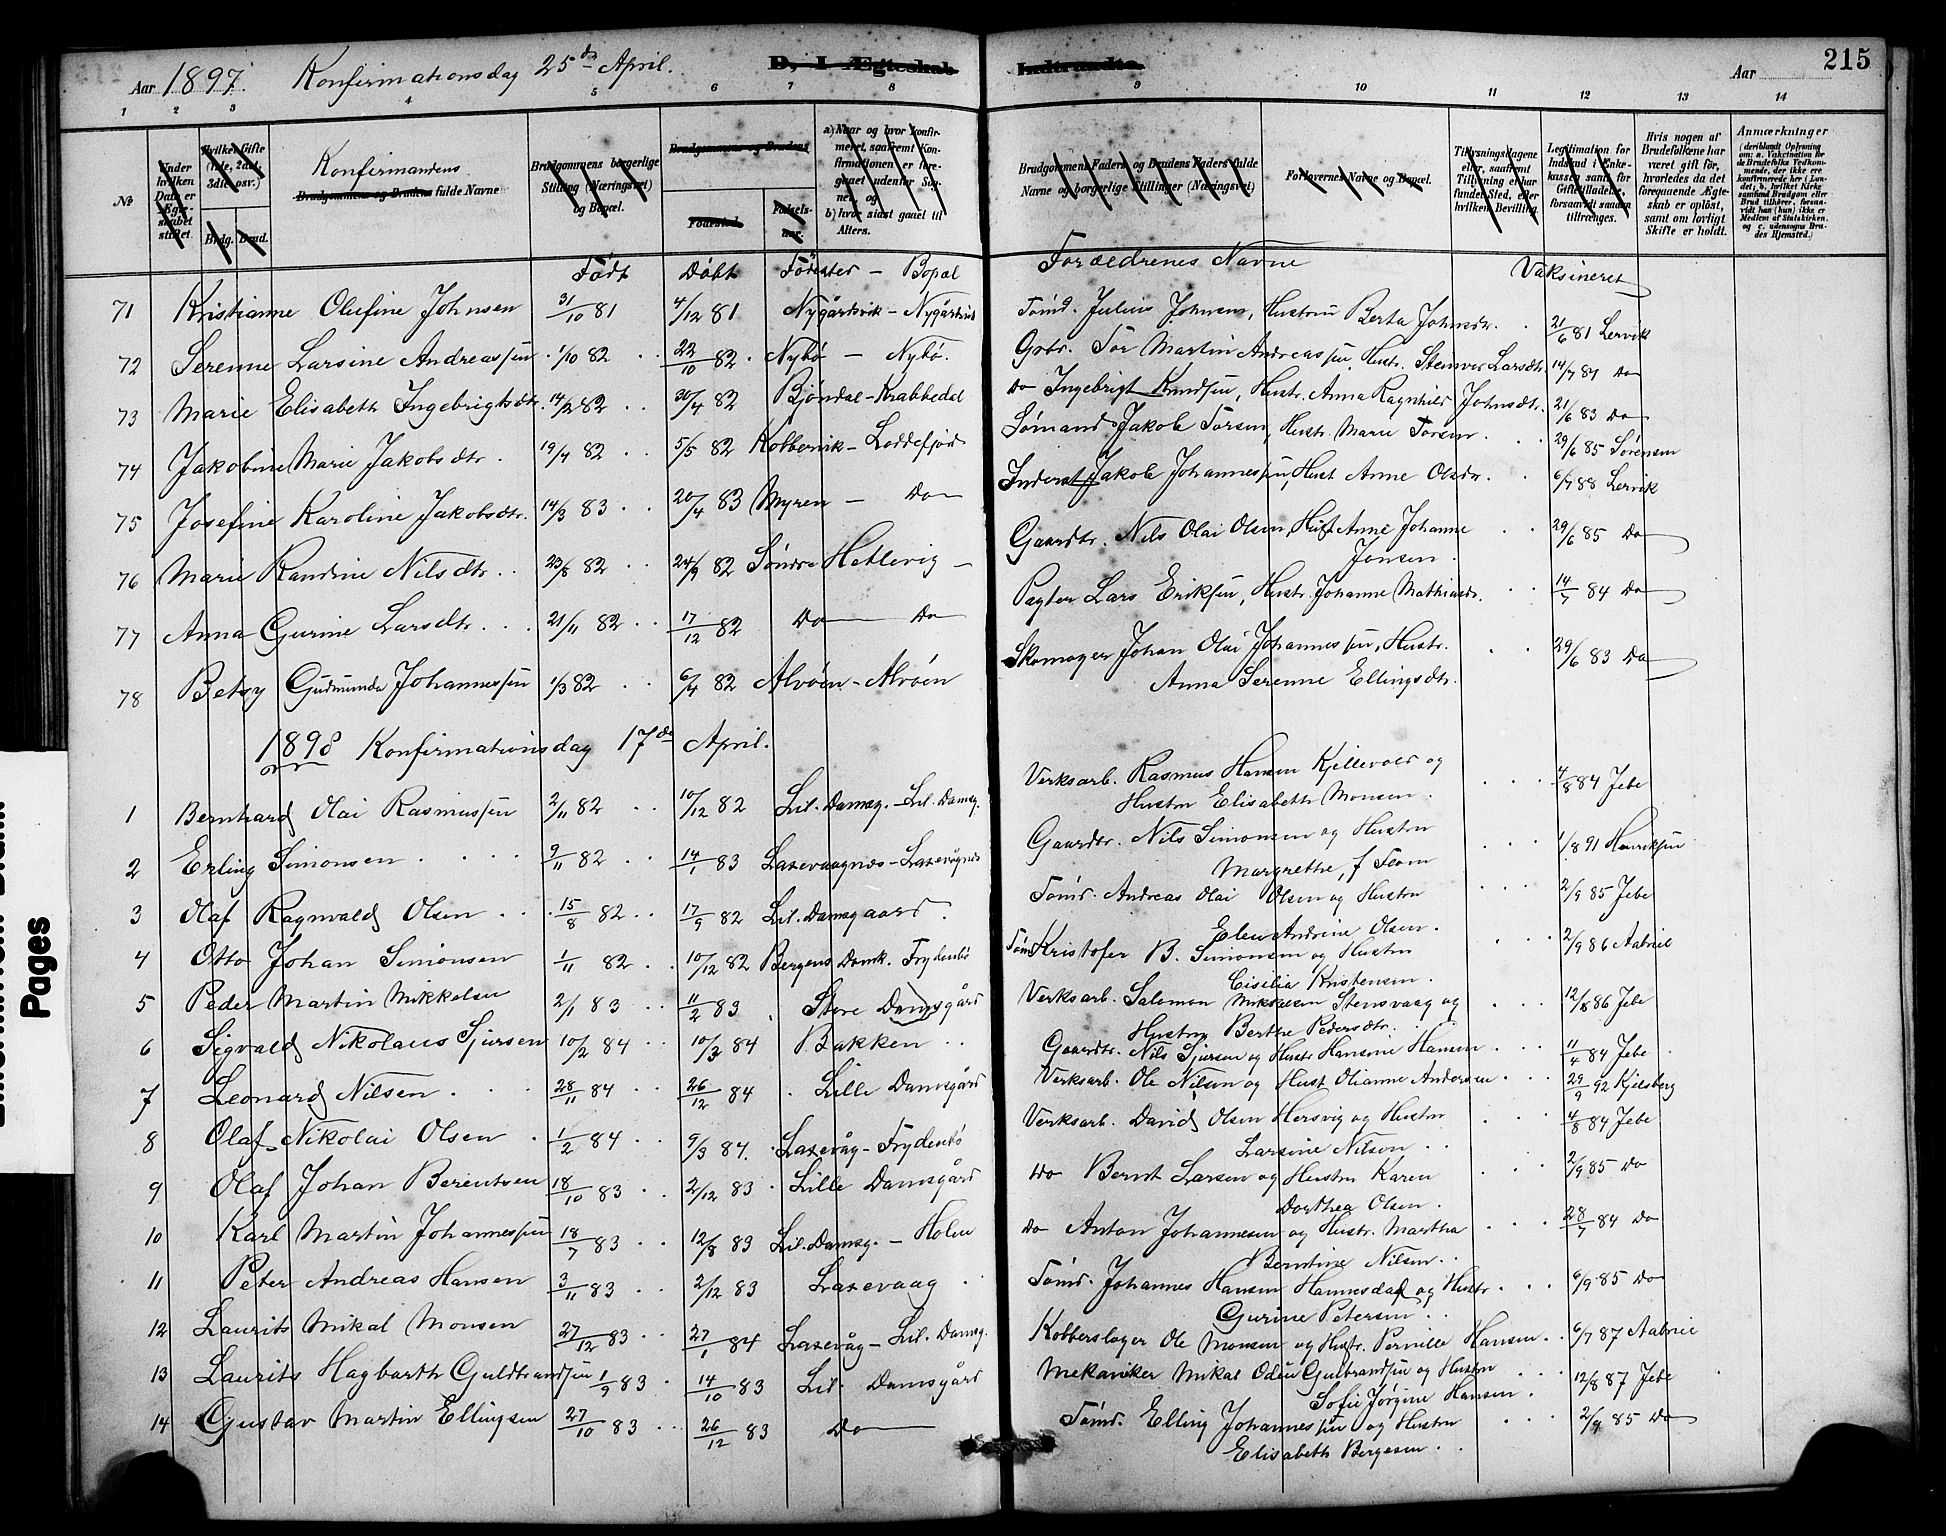 Aar 1897. Konfirmationsdag 25de April. D, I Ægteskab Indtraadte Aar 215
1 3 4 5 6 7 8 9 10 11 12 13 14
№
Under hvilken Dato er Ægteskabet stiftet.
Hvilken Gifte (1ste, 2det, 3die osv.)
Brdg. Brud.
Konfirmandens
Brudgommens og Brudens fulde Navne
Brudgommens borgerlige Stilling (Næringsvei) og Bopæl.
Brudgommens og Brudens
Fødested. Fødselsaar.
a) Naar og hvor konfirmeret, saafremt Konfirmationen er foregaaet udenfor Sognet, og
b) hvor sidst gaaet til Alters.
Brudgommens Faders og Brudens Faders fulde Navne og borgerlige Stillinger (Næringsvei)
Forlovernes Navne og Bopæl.
Tillysningsdagene eller, saafremt Tillysning ei har fundet Sted, efter hvilken Bevilling.
Legitimation for Indskud i Enkekassen samt for Giftetilladelse, forsaavidt saadan tiltrænges.
Hvis nogen af Brudefolkene har været gift før, hvorledes da det foregaaende Ægteskab er opløst, samt om lovligt Skifte er holdt.
Anmærkninger
(deriblandt Oplysning om: a. Vakcination for de Brudefolks Vedkommende, der ikke ere konfirmerede her i Landet; b. hvilket Kirkesamfund Brudgom eller Brud tilhører, forsaavidt han (hun) ikke er Medlem af Statskirken, og c. udensogns Brudes Hjemsted.)
Født Døbt Fødester – Bopæl Forældrenes Navne Vaksineret
71 Kristianne Olufine Johnsen 31/10 81 4/12 81 Nygårdsvik – Nygårdsvik Tømd. Julius Johnsen, Hustru Berta Johnsdtr. 21/6 81 Lervik
72 Serenne Larsine Andreassen 1/10 82 22/10 82 Nybø – Nybø. Gbr. Tor Martin Andreassen, Hustr. Steinver Larsdtr. 14/7 84 Do
73 Marie Elisabeth Ingebrigtsdtr. 14/2 82 30/4 82 Bjøndal – Krabbedal Do Ingebrigt Knudsen, Hustr. Anna Ragnhild Johnsdtr. 21/6 83 Do
74 Jakobine Marie Jakobsdtr. 19/4 82 5/5 82 Kobbervik – Loddefjord Sømand Jakob Torsen, Hustr. Marie Torsen 29/6 85 Sørensen
75 Josefine Karoline Jakobsdtr. 14/3 83 20/4 83 Myren – Do Inderst Jakob Johannessen, Hust Anne Olsdtr. 6/7 88 Lervik
76 Marie Randine Nilsdtr. 23/8 82 24/9 82 Søndre Hetlevig – Gaardbr. Nils Olai Olsen, Hust Anne Johanne Jonsen. 29/6 85 Do
77 Anna Gurine Larsdtr. 21/11 82 17/12 82 Do Do Pagter Lars Eriksen, Hustr. Johanne Mathiasdr. 14/7 84 Do
78 Betsy Gudmunda Johannessen 1/3 82 6/4 82 Alvøen – Alvøen Skomager Johan Olai Johannessen, Hustr. Anna Serenne Ellingsdtr. 29/6 83 Do
1898 Konfirmationsdag 17de April.
1 Bernhard Olai Rasmussen 2/11 82 10/12 82 Lil. Damsg. – Lil. Damsg. Verksarb. Rasmus Hansen Kjillevold og Hustru Elisabeth Monsen. 4/8 84 Jebe
2 Erling Simonsen 9/11 82 14/1 83 Laxevaagnæs – Laxevågnes Gaardbr. Nils Simonsen og Hustru Margrethe, f Flom 1/8 91 Henriksen
3 Olaf Ragnvald Olsen 15/8 82 17/9 82 Lil. Damsgaard. Tømd. Andreas Olai Olsen og Hustru Elen Andrine Olsen. 2/9 85 Jebe
4 Otto Johan Simonsen 1/11 82 10/12 82 Bergens Domk. Frydenbø Tømd Kristofer B. Simonsen og Hustru Cisilia Kristensen. 2/9 86 Aabrie
5 Peder Martin Mikkelsen 2/1 83 11/2 83 Store Damsgård Verksarb. Salomon Mikkelsen Stensvaag og Hustru Berthe Pedersdtr. 12/8 86 Jebe
6 Sigvald Nikolaus Sjursen 10/2 84 10/3 84 Bakken Gaardbr. Nils Sjursen og Hustr Hansine Hansen 11/4 84 Jebe
7 Leonard Nilsen 28/11 84 26/12 84 Lille Damsgård Verksarb. Ole Nilsen og Hust Olianne Andersen 29/9 92 Kjelsberg
8 Olaf Nikolai Olsen 1/2 84 9/3 84. Laxevåg – Frydenbø Verksarb. David Olsen Hersvig og Hustru Larsine Nilsen 4/8 84 Jebe
9 Olaf Johan Berentsen 18/10 83 2/12 83 Lille Damsgård Do Bernt Larsen og Hustru Karen Dorthea Olsen. 2/9 85 Do
10 Karl Martin Johannessen 18/7 83 12/8 83 Lil. Damsg. – Holen Do Anton Johannesen og Hustr. Martha Berntine Nilsen. 28/7 84 Do
11 Peter Andreas Hansen 3/11 83 2/12 83 Laxevaag Tømd. Johannes Hansen Hannesdal og Hustr. Gurine Petersen. 6/9 85 Do
12 Laurits Mikal Monsen 27/12 83 27/1 84 Laxevåg – Lil. Damsg. Kobberslager Ole Monsen og Hustr. Pernille Hansen. 6/7 87 Aabrie
13 Laurits Hagbarth Guldbrandsen 1/9 83 14/10 83 Lil. Damsgård Mekaniker Mikal Odin Gulbrandsen og Hustru Sofie Jørgine Hansen. 12/8 87 Jebe
14 Gustav Martin Ellingsen 27/10 83 26/12 83 Do Tømd. Elling Johannessen og Hustru Elisabeth Bergesen. 2/9 85 Do
Pages